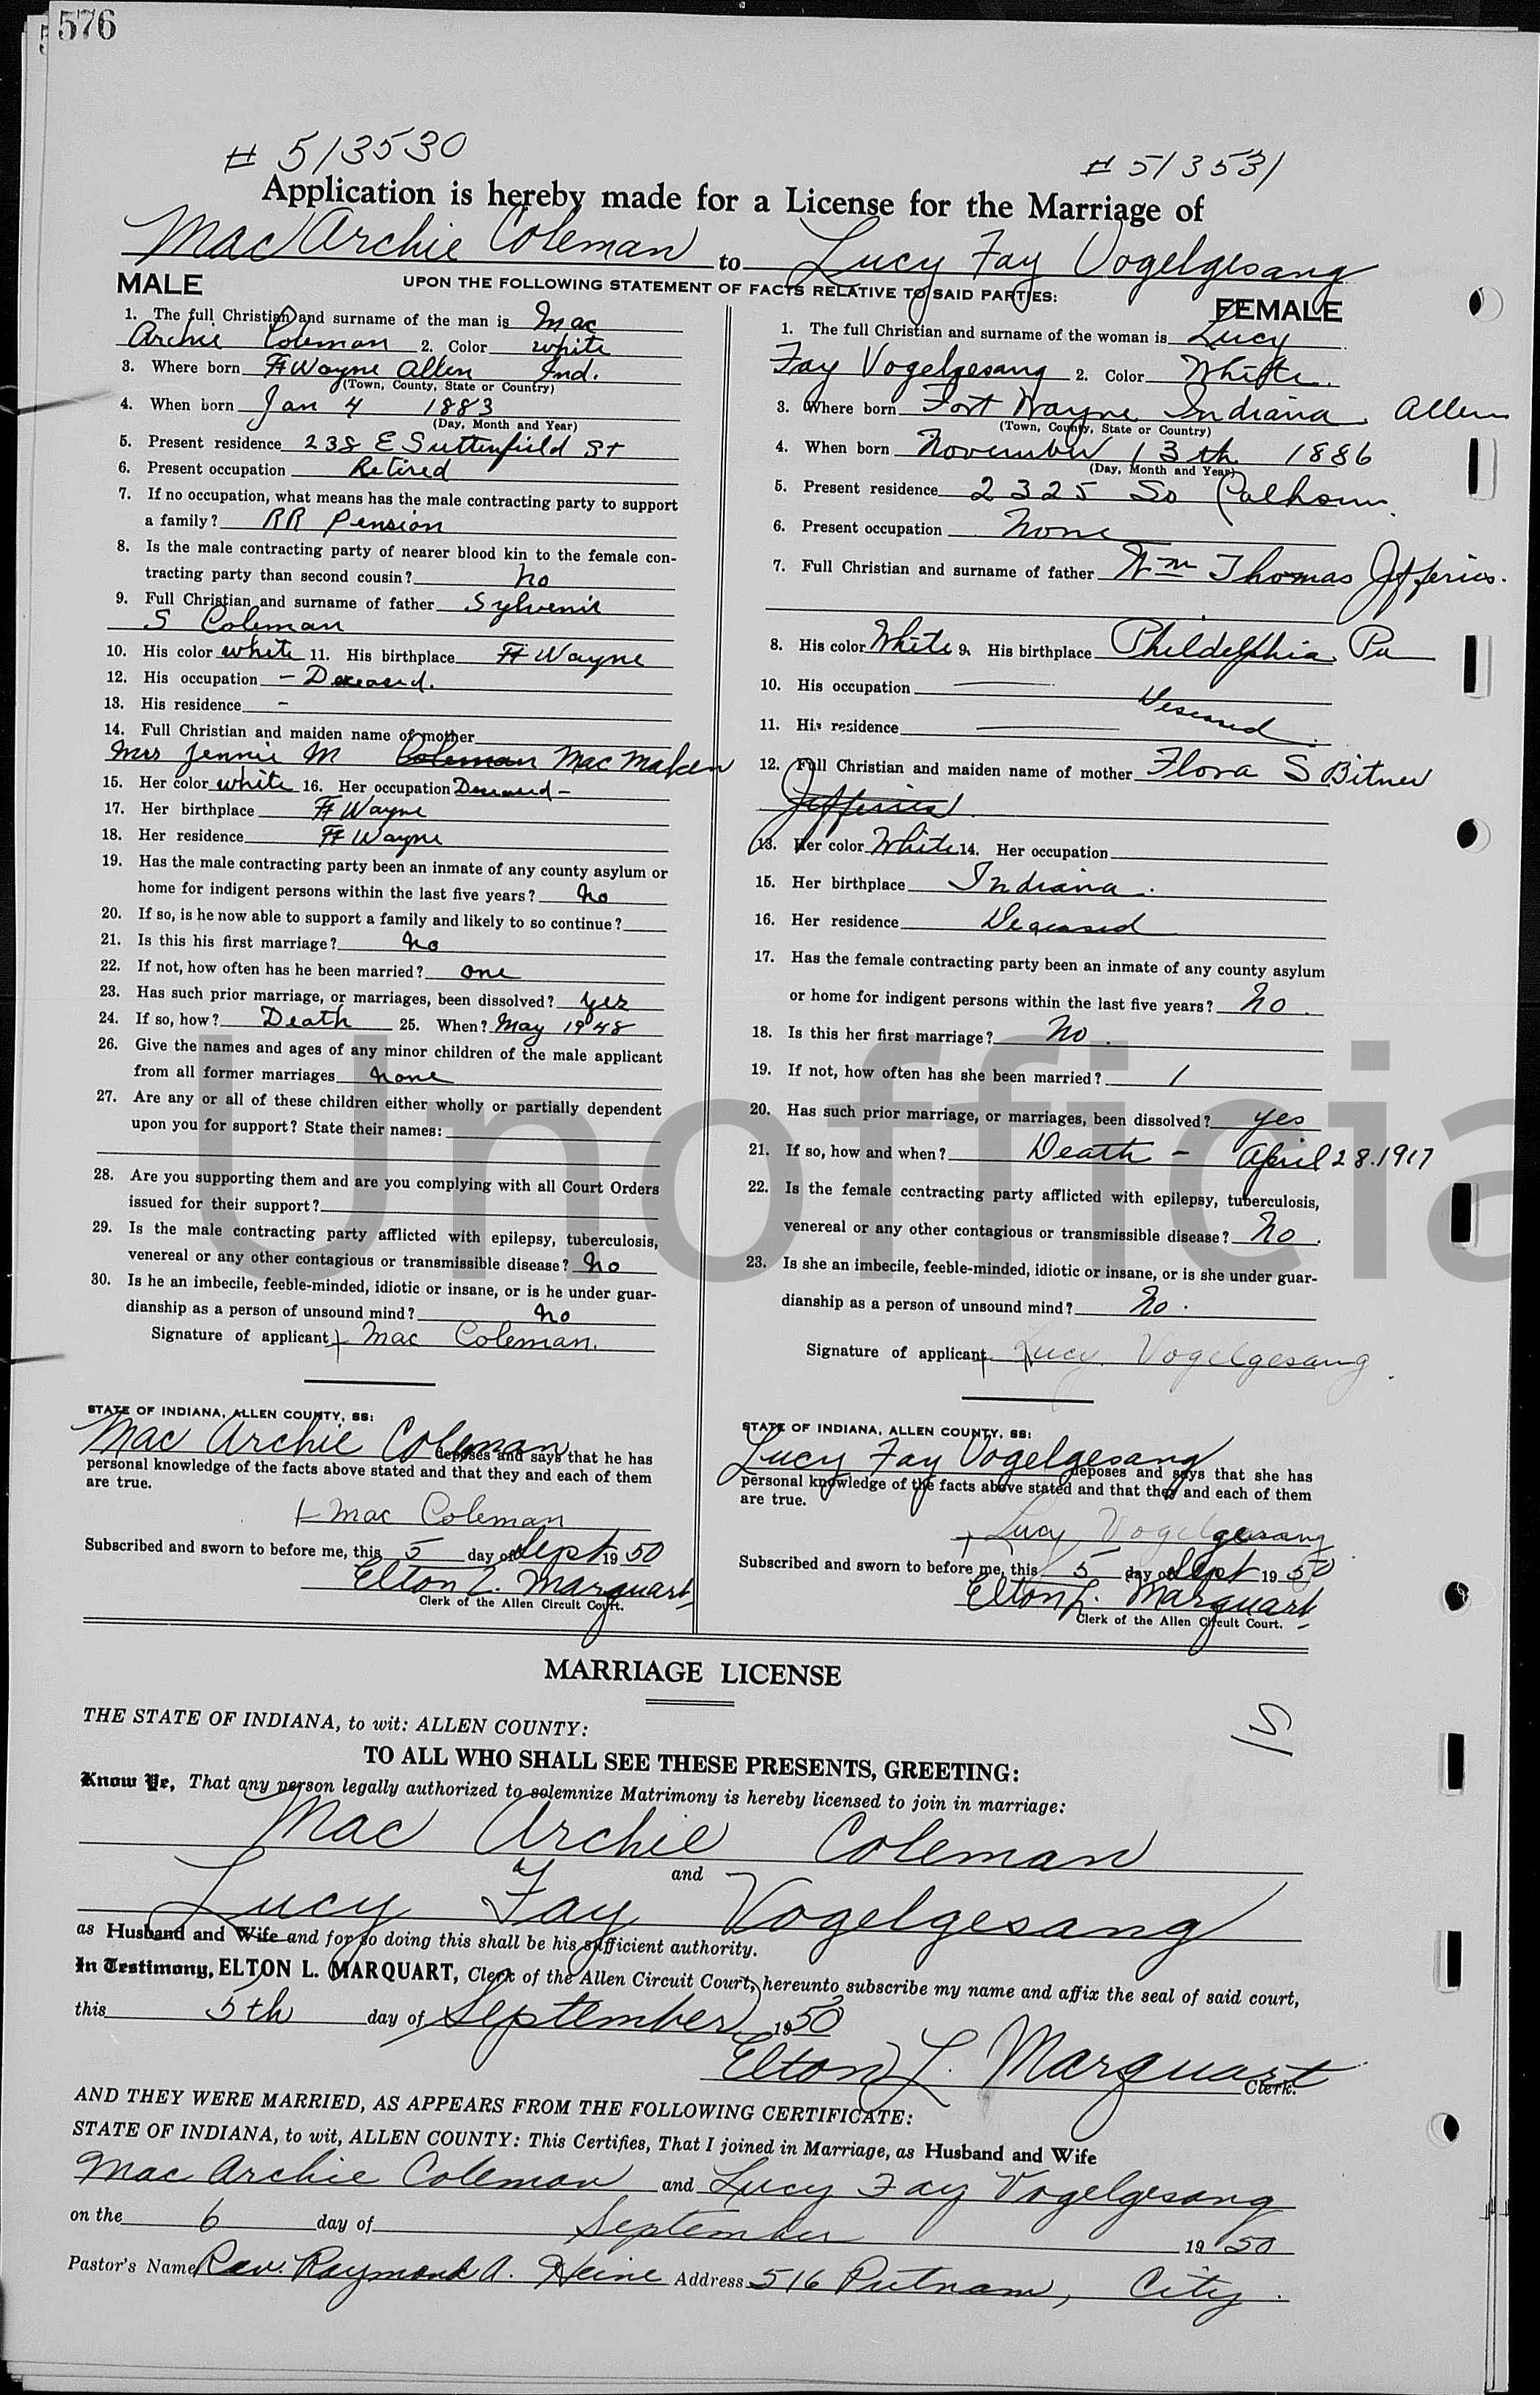 576
# 513530
# 513531
Application is hereby made for a License for the Marriage of
Mac Archie Coleman to Lucy Fay Vogelgesang
UPON THE FOLLOWING STATEMENT OF FACTS RELATIVE TO SAID PARTIES:
MALE
1. The full Christian and surname of the man is Mac
Archie Coleman 2. Color white
3. Where born Ft Wayne Allen Ind.
(Town, County, State or Country)
4. When born Jan 4 1883
(Day, Month and Year)
5. Present residence 238 E Suttenfield St
6. Present occupation Retired
7. If no occupation, what means has the male contracting party to support
a family? RR Pension
8. Is the male contracting party of nearer blood kin to the female con-
tracting party than second cousin? no
9. Full Christian and surname of father
S Coleman
10. His color white 11. His birthplace Ft Wayne
12. His occupation - Deceased.
13. His residence -
14. Full Christian and maiden name of mother
Mrs Jennie M Coleman Mac Maken
15. Her color white 16. Her occupation Deceased -
17. Her birthplace Ft Wayne
18. Her residence Ft Wayne
19. Has the male contracting party been an inmate of any county asylum or
home for indigent persons within the last five years? no
20. If so, is he now able to support a family and likely to so continue?
21. Is this his first marriage? no
22. If not, how often has he been married? one
23. Has such prior marriage, or marriages, been dissolved? yes
24. If so, how? Death 25. When? May 1948
26. Give the names and ages of any minor children of the male applicant
from all former marriages none
27. Are any or all of these children either wholly or partially dependent
upon you for support? State their names:
28. Are you supporting them and are you complying with all Court Orders
issued for their support?
29. Is the male contracting party afflicted with epilepsy, tuberculosis,
venereal or any other contagious or transmissible disease? no
30. Is he an imbecile, feeble-minded, idiotic or insane, or is he under guar-
dianship as a person of unsound mind? no
Signature of applicant Mac Coleman.
STATE OF INDIANA, ALLEN COUNTY, SS:
Mac Archie Coleman deposes and says that he has
personal knowledge of the facts above stated and that they and each of them
are true.
Mac Coleman
Subscribed and sworn to before me, this 5 day of Sept 1950
Elton L. Marquart
Clerk of the Allen Circuit Court.
FEMALE
1. The full Christian and surname of the woman is Lucy
Fay Vogelgesang 2. Color White.
3. Where born Fort Wayne Indiana. Allen
(Town, County, State or Country)
4. When born November 13th 1886
(Day, Month and Year)
5. Present residence 2325 So Calhoun.
6. Present occupation None
7. Full Christian and surname of father Wm Thomas Jefferies.
8. His color White 9. His birthplace Phildelphia Pa
10. His occupation
Deceased.
11. His residence
12. Full Christian and maiden name of mother Flora S Bitner
Jefferies
13. Her color White 14. Her occupation
15. Her birthplace Indiana.
16. Her residence Deceased
17. Has the female contracting party been an inmate of any county asylum
or home for indigent persons within the last five years? No.
18. Is this her first marriage? No.
19. If not, how often has she been married? 1
20. Has such prior marriage, or marriages, been dissolved? yes
21. If so, how and when? Death - April 28. 1917
22. Is the female contracting party afflicted with epilepsy, tuberculosis,
venereal or any other contagious or transmissible disease? No.
23. Is she an imbecile, feeble-minded, idiotic or insane, or is she under guar-
dianship as a person of unsound mind? No.
Signature of applicant Lucy Vogelgesang
STATE OF INDIANA, ALLEN COUNTY, SS:
Lucy Fay Vogelgesang deposes and says that she has
personal knowledge of the facts above stated and that they and each of them
are true.
Lucy Vogelgesang
Subscribed and sworn to before me, this 5 day of Sept 1950
Elton L. Marquart
Clerk of the Allen Circuit Court.
Unofficia
MARRIAGE LICENSE
THE STATE OF INDIANA, to wit: ALLEN COUNTY:
TO ALL WHO SHALL SEE THESE PRESENTS, GREETING:
Know Ye, That any person legally authorized to solemnize Matrimony is hereby licensed to join in marriage:
Mac Archie Coleman
and
Lucy Fay Vogelgesang
as Husband and Wife and for so doing this shall be his sufficient authority.
In Testimony, ELTON L. MARQUART, Clerk of the Allen Circuit Court, hereunto subscribe my name and affix the seal of said court,
this 5th day of September 1950
Elton L. Marquart
Clerk.
AND THEY WERE MARRIED, AS APPEARS FROM THE FOLLOWING CERTIFICATE:
STATE OF INDIANA, to wit, ALLEN COUNTY: This Certifies, That I joined in Marriage, as Husband and Wife
Mac Archie Coleman and Lucy Fay Vogelgesang
on the 6 day of September 1950
Pastor's Name Rev. Raymond A. Heine Address 516 Putnam, City.